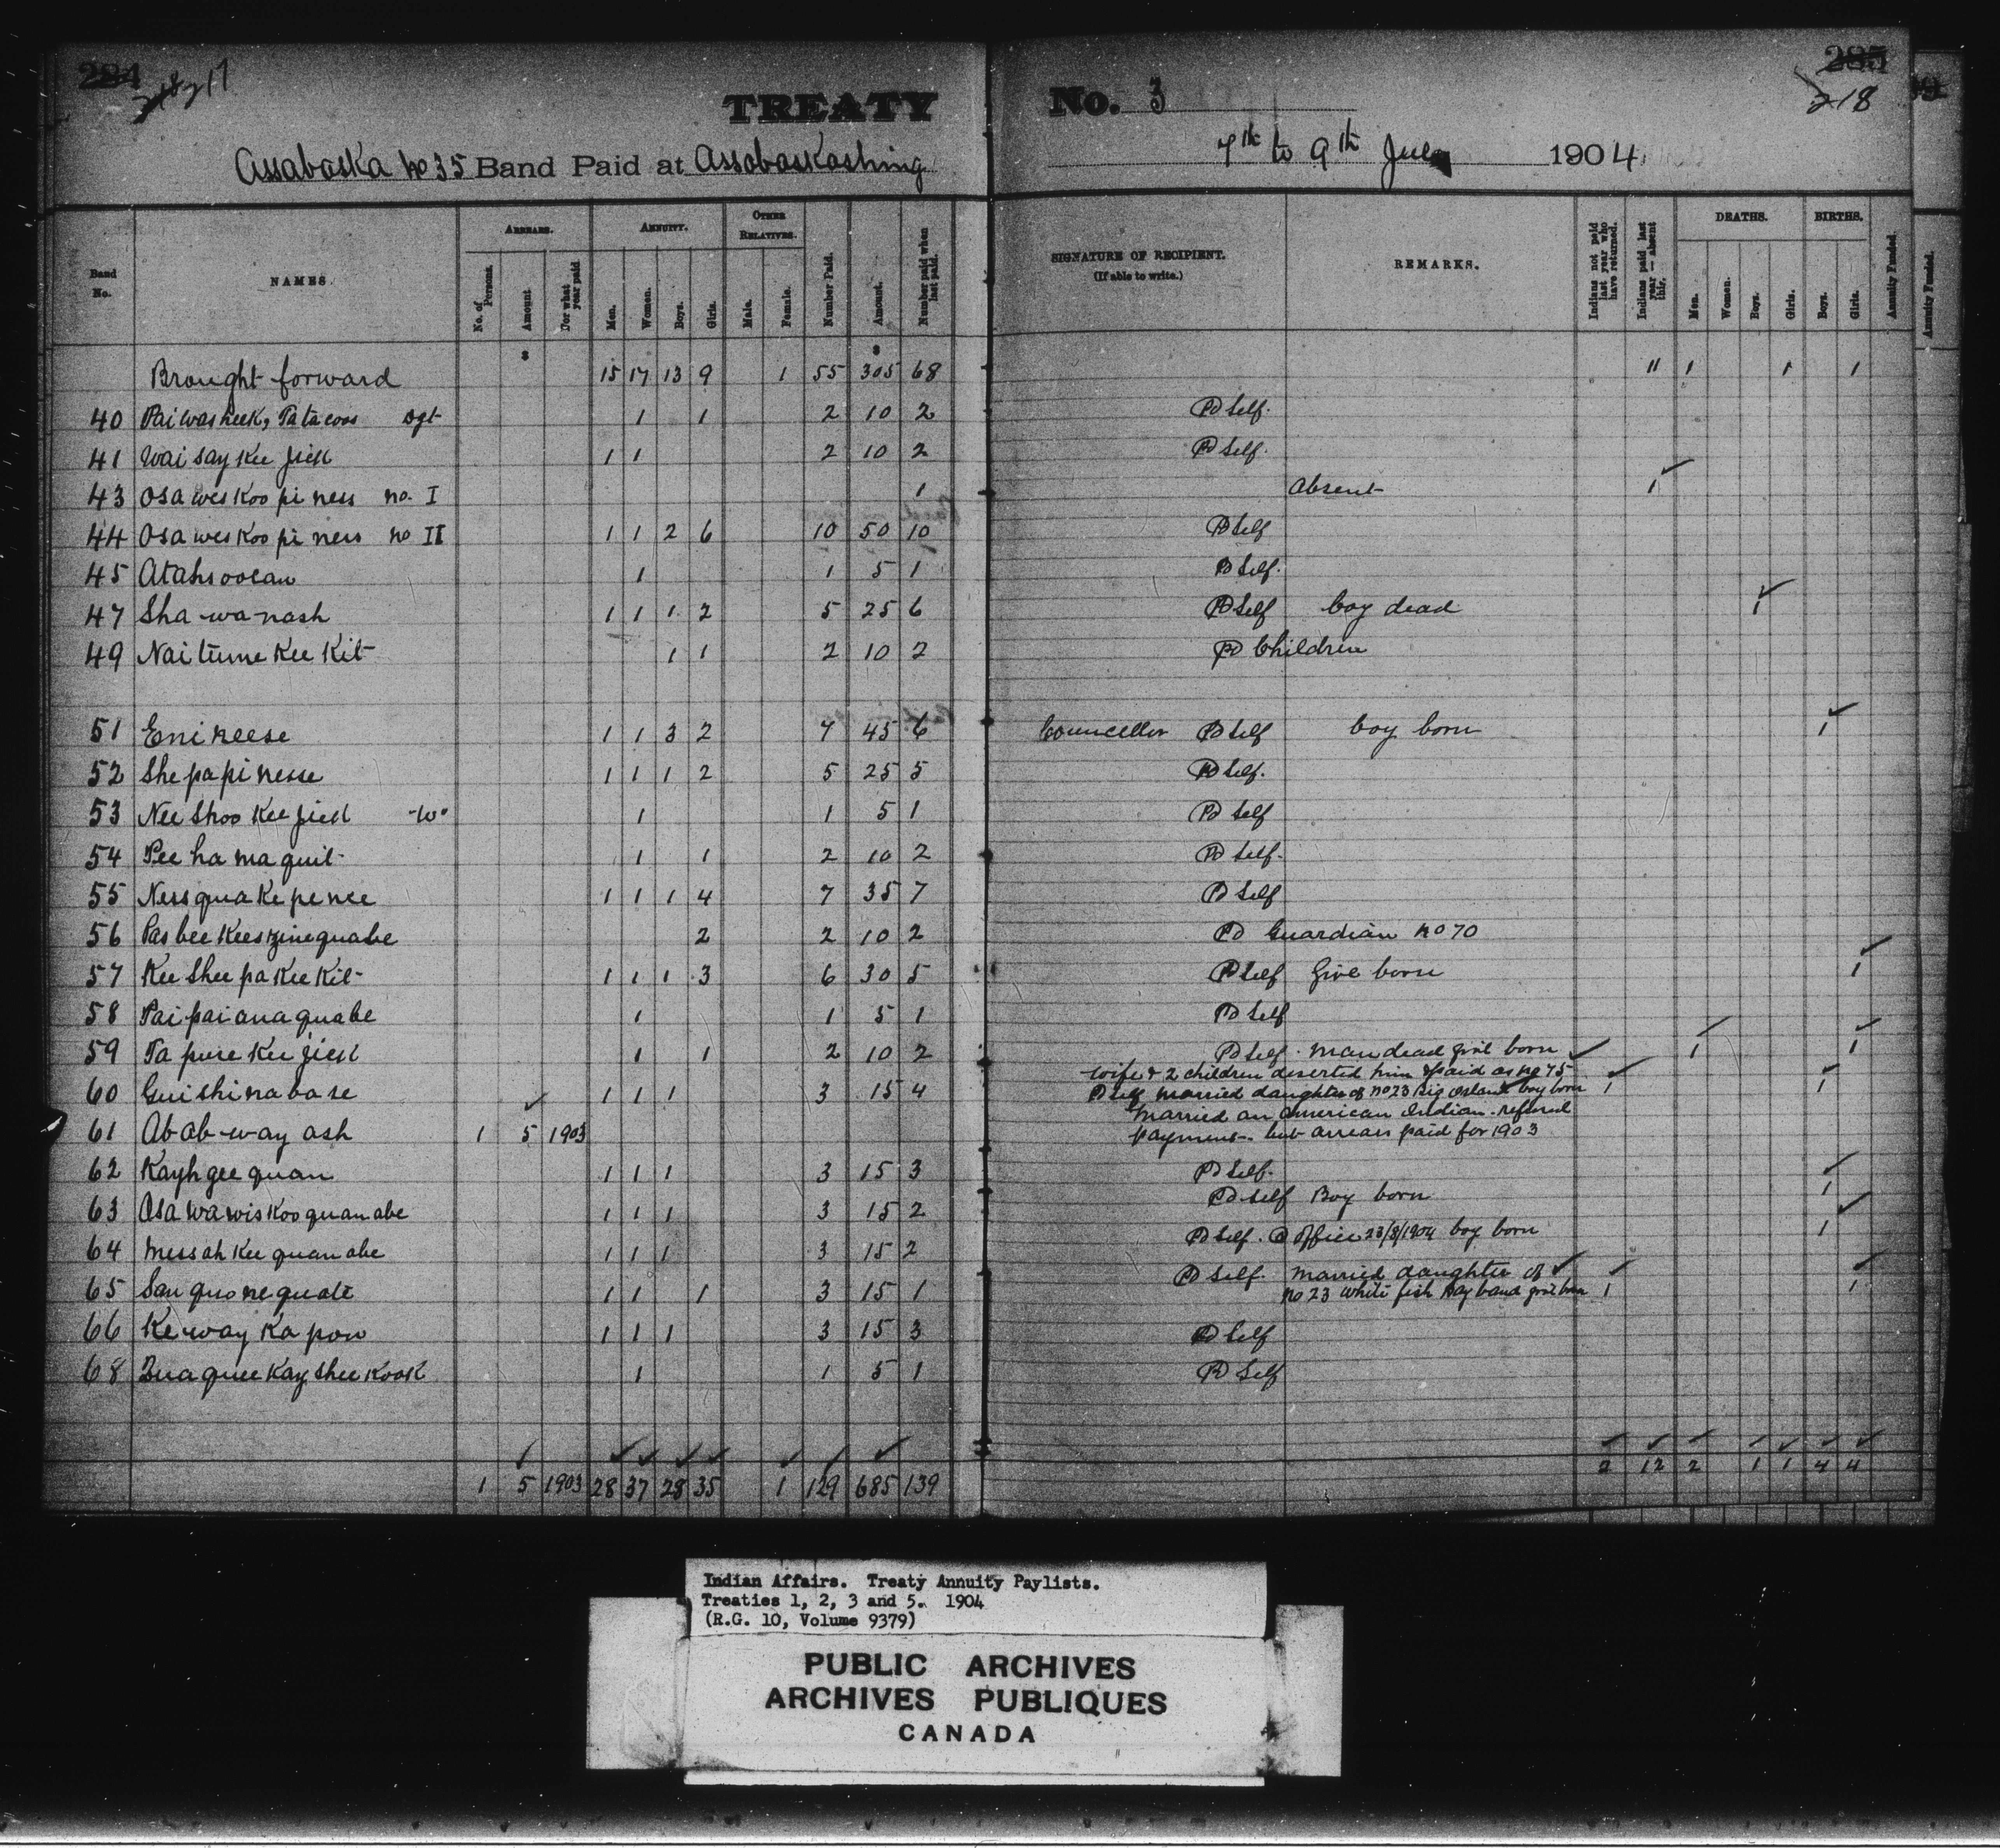 284
218 217
TREATY
No. 3
285
218
Assabaska no 35 Band Paid at Assabaskashing
7th to 9th July 1904
Band No.
NAMES.
ARREARS.
No. of Persons.
Amount
For what year paid
ANNUITY.
Men.
Women.
Boys.
Girls.
OTHER RELATIVES.
Male.
Female.
Number Paid.
Amount.
Number paid when last paid.
SIGNATURE OF RECIPIENT.
(If able to write.)
REMARKS.
Indians not paid last year who have returned.
Indians paid last year — Absent this.
DEATHS.
Men.
Women.
Boys.
Girls.
BIRTHS.
Boys.
Girls.
Annuity Funded.
Annuity Funded.
$ $
Brought forward 15 17 13 9 1 55 305 68 11 1 1 1
40 Paiwasheek, Patacoos Dgt 1 1 2 10 2 Pd Self.
41 Waisaykeejick 1 1 2 10 2 Pd Self.
43 Osaweskoopiness no. I 1 Absent 1
44 Osaweskoopiness no II 1 1 2 6 10 50 10 Pd Self
45 Atahsoocan 1 1 5 1 Pd Self.
47 Sha-wa-nash 1 1 1 2 5 25 6 Pd Self boy dead 1
49 Naitumekeekit 1 1 2 10 2 Pd Children
51 Enineese 1 1 3 2 7 45 6 Councellor Pd Self boy born 1
52 Shepapinesse 1 1 1 2 5 25 5 Pd Self.
53 Neeshookeejick "W" 1 1 5 1 Pd Self
54 Peehamaquit 1 1 2 10 2 Pd Self.
55 Nessquakepenee 1 1 1 4 7 35 7 Pd Self
56 2 2 10 2 Pd Guardian no 70
57 Keesheepakeekit 1 1 1 3 6 30 5 Pd Self Girl born 1
58 Paipaianaquabe 1 1 5 1 Pd Self
59 Tapusekeejick 1 1 2 10 2 Pd Self. Man dead girl born 1 1
Wife & 2 children deserted him & paid as no 75
60 Guishinabase 1 1 1 3 15 4 Pd Self married daughter of no 23 Big Island boy born 1 1
Married an American Indian. refused
61 Abab-way ash 1 5 1903 payment. but arrears paid for 1903
62 Kayhgeequan 1 1 1 3 15 3 Pd Self.
63 Osawawiskooquanabe 1 1 1 3 15 2 Pd Self Boy born 1
64 Messahkeequanabe 1 1 1 3 15 2 Pd Self. @ Office 23/8/1904 boy born 1
65 Sanquonequate 1 1 1 3 15 1 Pd Self. Married daughter of
no 23 White fish Bay band girl born 1 1
66 Keway Kapow 1 1 1 3 15 3 Pd Self
68 Zuaquee Kay shee Kook 1 1 5 1 Pd Self
1 5 1903 28 37 28 35 1 129 685 139 2 12 2 1 1 4 4
Indian Affairs. Treaty Annuity Paylists.
Treaties 1, 2, 3 and 5. 1904
(R.G. 10, Volume 9379)
PUBLIC ARCHIVES
ARCHIVES PUBLIQUES
CANADA